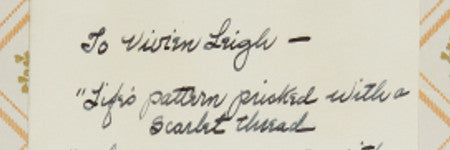 To Vivien Leigh —
"Life's pattern pricked with a
scarlet thread